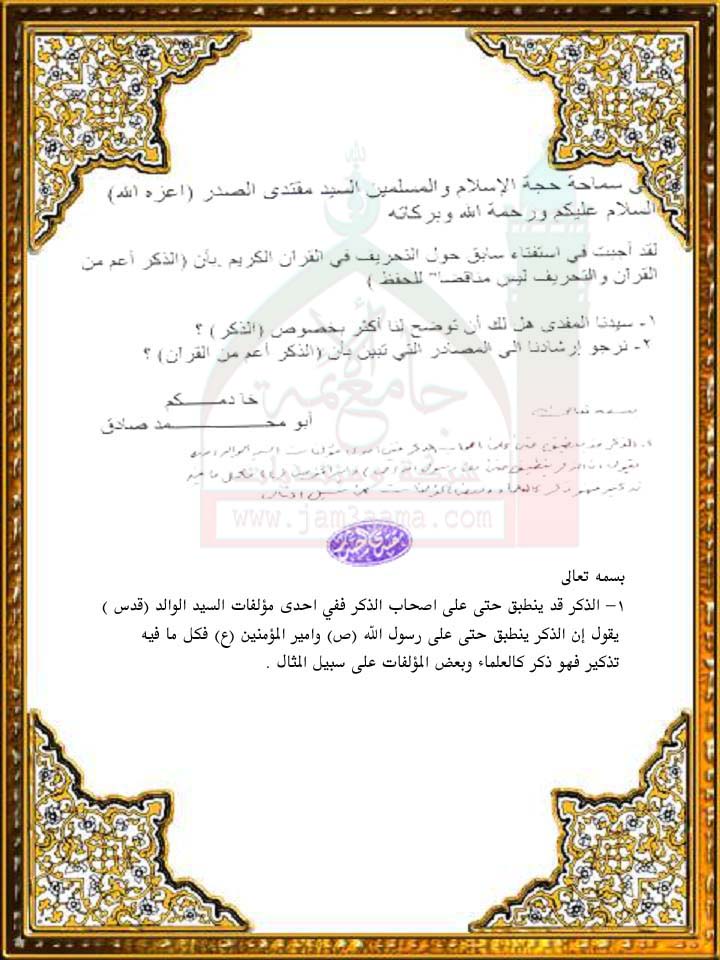 سماحة حجة الإسلام والمسلمين السيد مقتدى الصدر (اعزه الله)
السلام عليكم ورحمة الله وبركاته
لقد أجبت في استفتاء سابق حول التحريف في القران الكريم .بأن (الذكر أعم من
القرآن والتحريف ليس مناقضا" للحفظ )
١- سيدنا المفدى هل لك أن توضح لنا أكثر بخصوص (الذكر) ؟
٢- نرجو إرشادنا الى المصادر التي تبين بأن (الذكر أعم من القران) ؟
خادمـــــكم
أبو محـــــــمد صادق
بسمه تعالى
جامع الأئمة
www.jam3aama.com
بسمه تعالى
١– الذكر قد ينطبق حتى على اصحاب الذكر ففي احدى مؤلفات السيد الوالد (قدس )
يقول إن الذكر ينطبق حتى على رسول الله (ص) وامير المؤمنين (ع) فكل ما فيه
تذكير فهو ذكر كالعلماء وبعض المؤلفات على سبيل المثال .